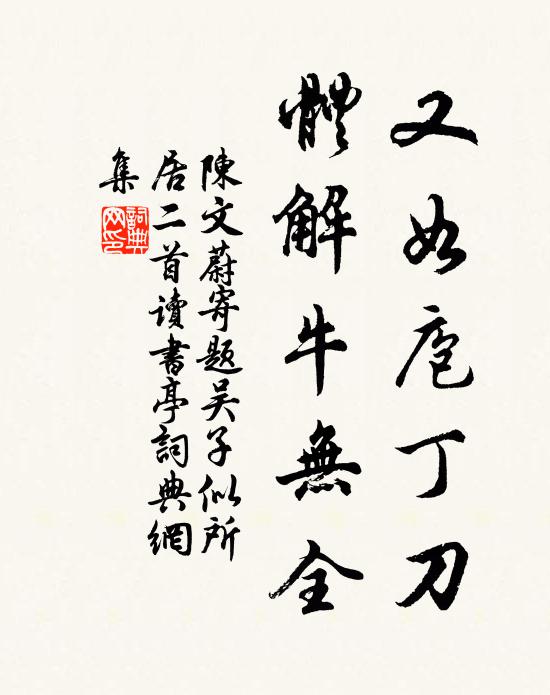 又如庖丁刀
體解牛無全
陳文蔚寄題吴子似所
居二首讀書亭詞典網
集
詞典網印